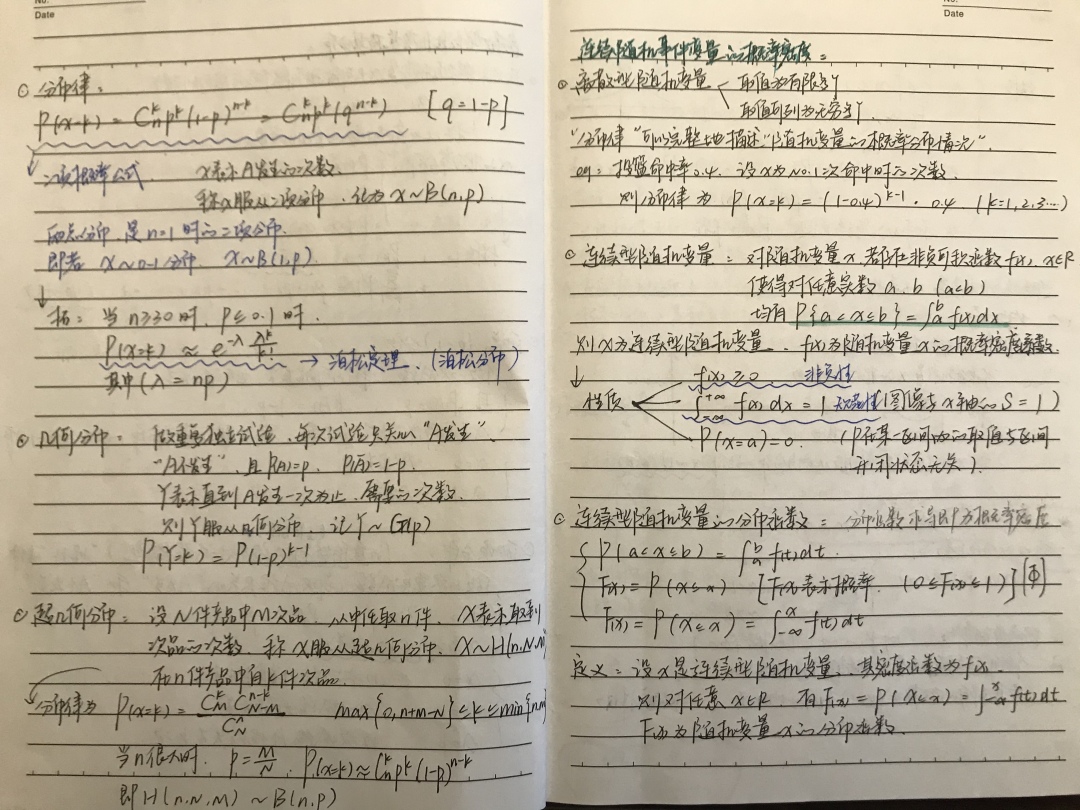 No.
Date
⊙ 分布律:
P(x=k) = C_n^k p^k (1-p)^{n-k} = C_n^k p^k (q^{n-k}) [q=1-p]
二项概率公式 x表示A发生的次数.
称x服从二项分布. 记为 x~B(n,p)
两点分布,是n=1时的二项分布.
即若 x~0-1分布. x~B(1,p).
拓: 当 n≥30时, p≤0.1时.
P(x=k) ≈ e^{-λ} λ^k/k! → 泊松定理. (泊松分布)
其中(λ=np)
⊙ 几何分布: 做重复独立试验, 每次试验只关心"A发生".
"A不发生", 且P(A)=p. P(Ā)=1-p.
Y表示直到A发生一次为止, 需要的次数.
则Y服从几何分布 记Y~G(p)
P(Y=k) = P(1-p)^{k-1}
⊙ 超几何分布: 设N件产品中M次品, 从中任取n件. X表示取到
次品的次数 称X服从超几何分布. X~H(n.N.M)
在n件产品中有k件次品.
分布律为 P(x=k) = C_M^k C_{N-M}^{n-k} / C_N^n max{0,n+m-N}≤k≤min{n,m}
当n很大时, p=M/N, P(x=k)≈C_n^k p^k (1-p)^{n-k}
即H(n.N.M) ~B(n,p)
Date
连续随机事件变量的概率密度:
⊙ 离散型随机变量 取值为有限个
取值可列为无穷个.
"分布律"可以完整地描述"随机变量的概率分布情况"
eg: 投篮命中率0.4. 设x为No.1次命中时的次数.
则分布律为 P(x=k) = (1-0.4)^{k-1}·0.4. (k=1,2,3…)
⊙ 连续型随机变量: 对随机变量x.若存在非负可积函数f(x), x∈R
使得对任意实数 a.b (a<b)
均有P{a<x≤b}=∫_a^b f(x)dx
则x为连续型随机变量. f(x)为随机变量x的概率密度函数.
f(x)≥0 非负性
性质 ∫_{-∞}^{+∞} f(x)dx = 1 (图像与x轴的S=1)
P(x=a)=0. (P在某一区间内的取值与区间
开闭状态无关).
⊙ 连续型随机变量的分布函数: 分布函数求导即为概率密度
P(a<x≤b) = ∫_a^b f(t)dt.
F(x) = P(x≤x) [F(x)表示概率. (0≤F(x)≤1)] [Φ]
F(x) = P(x≤x) = ∫_{-∞}^x f(t)dt
定义: 设x是连续型随机变量. 其密度函数为f(x).
则对任意 x∈R. 有F(x) = P(X≤x) = ∫_{-∞}^x f(t)dt
F(x)为随机变量x的分布函数.